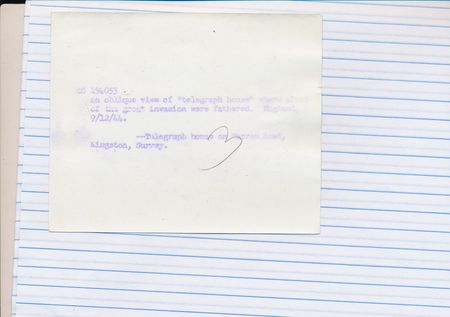 CC 194053
An oblique view of "telegraph house" where plans
of the great invasion were fathered. England,
9/12/44.
--Telegraph house on Warren Road,
Kingston, Surrey.
3